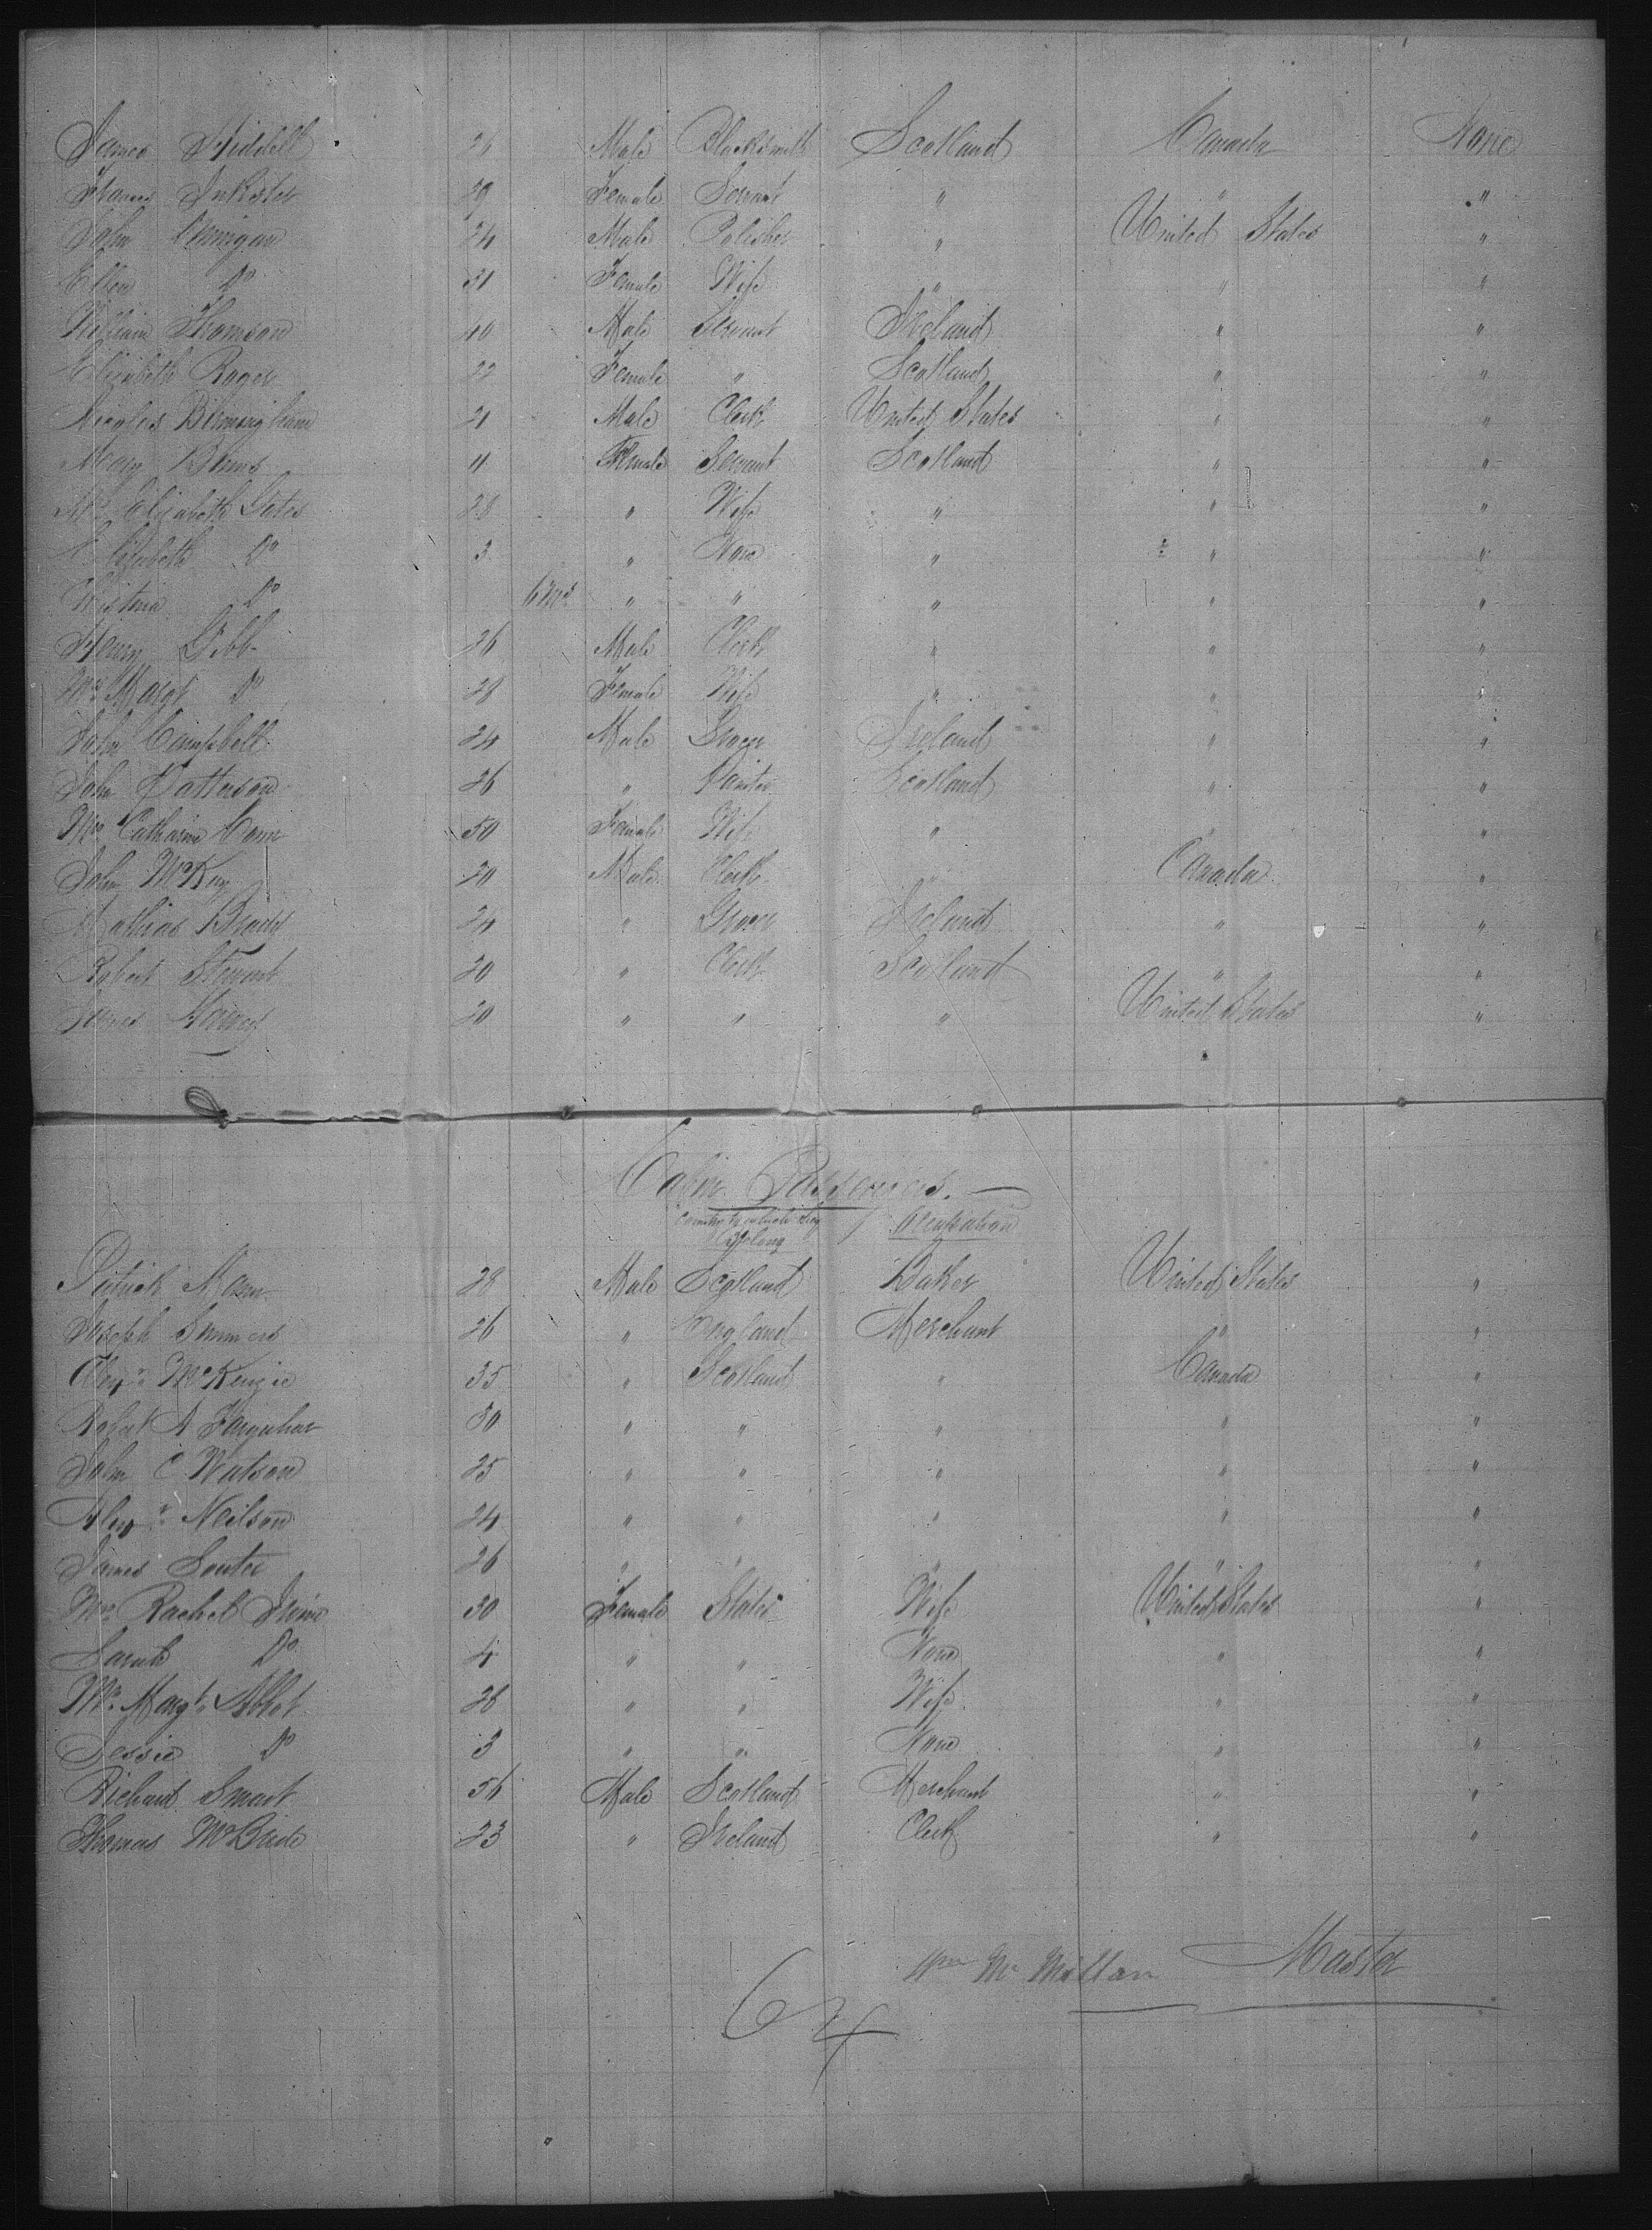 James Liddell 26 Male Blacksmith Scotland Canada None
Inkster 29 Female Servant " " "
John 24 Male Polisher " United States "
Ellen Do 31 Female Wife " " "
William Thomson 40 Male Servant Ireland " "
Elizabeth Roger 22 Female " Scotland " "
Birmingham 21 Male Clerk United States " "
Mary Binns 11 Female Servant Scotland " "
Mrs Elizabeth Gates 28 " Wife " " "
Elizabeth Do 3 " None " " "
Do 6 Mos " " " " "
Henry Gibb 26 Male Clerk " " "
Mrs Margt Do 28 Female Wife " " "
John Campbell 24 Male Grocer Ireland " "
John Patterson 26 " Painter Scotland " "
Mrs Catharine 50 Female Wife " " "
John McKay 20 Male Clerk " Canada "
Mathias Brady 24 " Grocer Ireland " "
Robert Stewart 20 " Clerk Scotland " "
James 20 " " " United States "
Cabin Passengers.
Country to which they Belong / Occupation
Patrick Mann 28 Male Scotland Baker United States "
Joseph Summers 26 " England Merchant " "
Alexr McKenzie 35 " Scotland " Canada "
Robert A Farquhar 30 " " " " "
John C Watson 25 " " " " "
Alexr Neilson 24 " " " " "
James Souter 26 " " " " "
Mrs Rachel Irvine 30 Female States Wife United States "
Sarah Do 4 " " None " "
Mrs Margt Abbot 26 " " Wife " "
Jessie Do 3 " " None " "
Richard Smart 56 Male Scotland Merchant " "
Thomas McBride 23 " Ireland Clerk " "
Wm McMillan Master
64